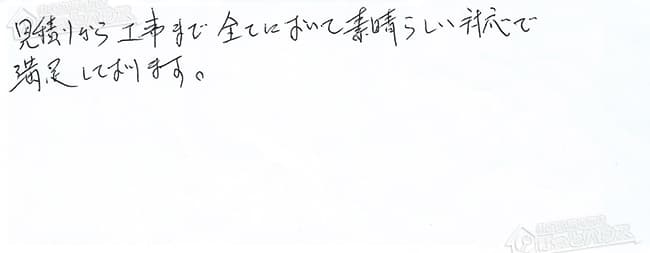 見積りから工事まで全てにおいて素晴らしい対応で
満足しております。